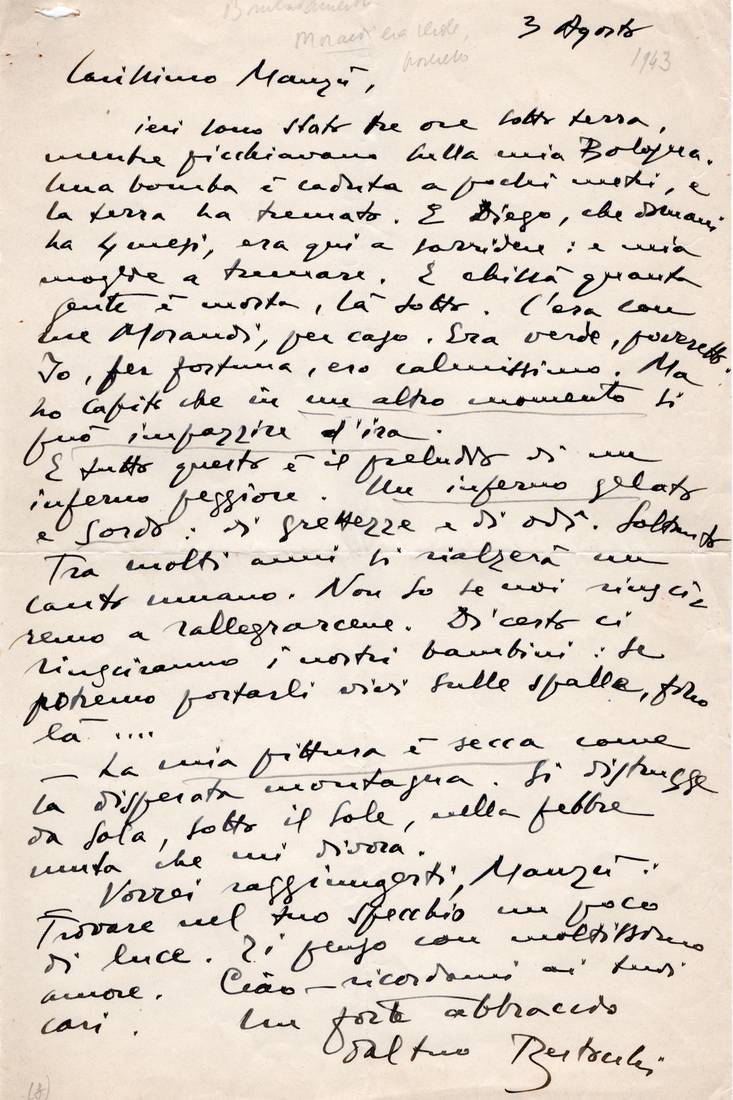 Bombardamento
Morandi era verde,
poveretto
3 Agosto
1943
Carissimo Manzù,
ieri sono stato tre ore sotto terra,
mentre picchiavano sulla mia Bologna.
Una bomba è caduta a pochi metri, e
la terra ha tremato. E Diego, che domani
ha 4 mesi, era qui a sorridere: e mia
moglie a tremare. E chissà quanta
gente è morta, là sotto. C'era con
me Morandi, per caso. Era verde, poveretto.
Io, per fortuna, ero calmissimo. Ma
ho capito che in un altro momento si
può impazzire d'ira.
E tutto questo è il preludio di un
inferno peggiore. Un inferno gelato
e sordo: di grettezze e di odî. Soltanto
Tra molti anni si rialzerà un
canto umano. Non so se noi riusci
remo a rallegrarcene. Di certo ci
riusciranno i nostri bambini: se
potremo portarli vivi sulle spalle, fino
là ....
— La mia pittura è secca come
la disperata montagna. Si distrugge
da sola, sotto il sole, nella febbre
muta che mi divora.
Vorrei raggiungerti, Manzù:
Trovare nel tuo specchio un poco
di luce. Ti penso con moltissimo
amore. Ciao — ricordami ai tuoi
cari. Un forte abbraccio
dal tuo Bertocchi